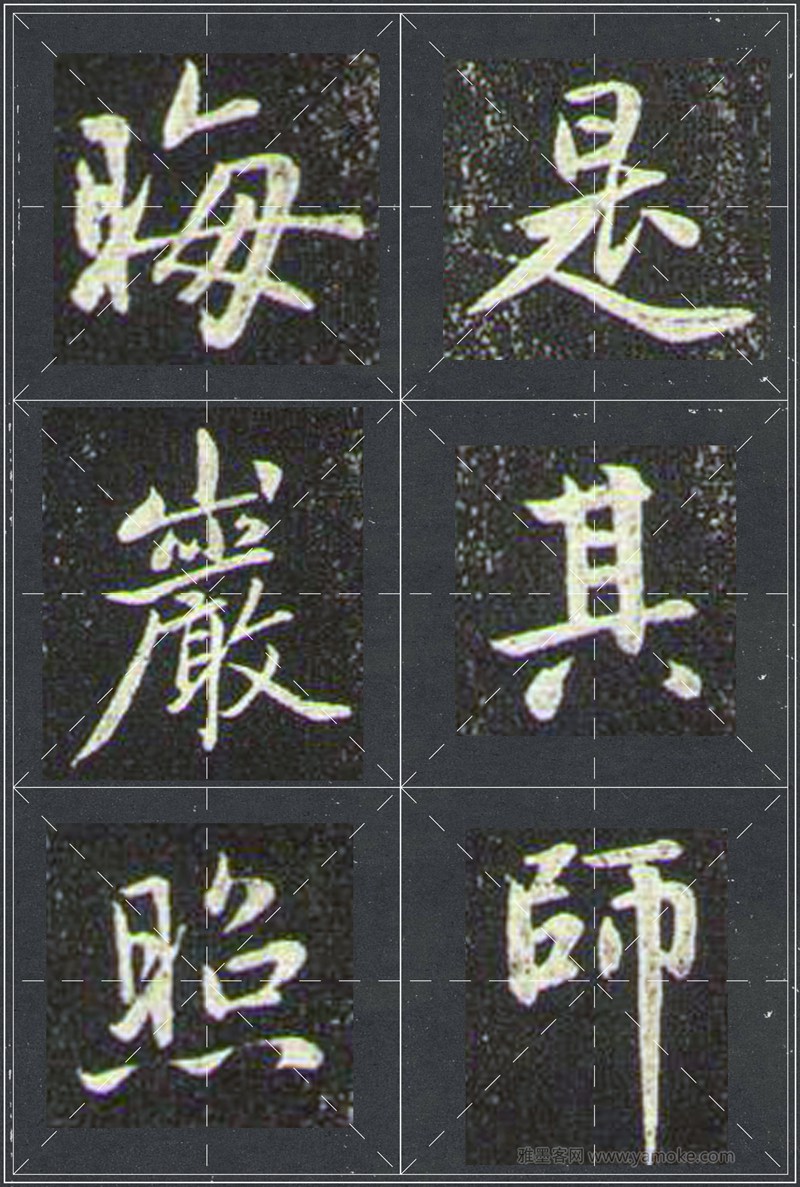 是其師
晦巖照
雅墨客网 www.yamoke.com